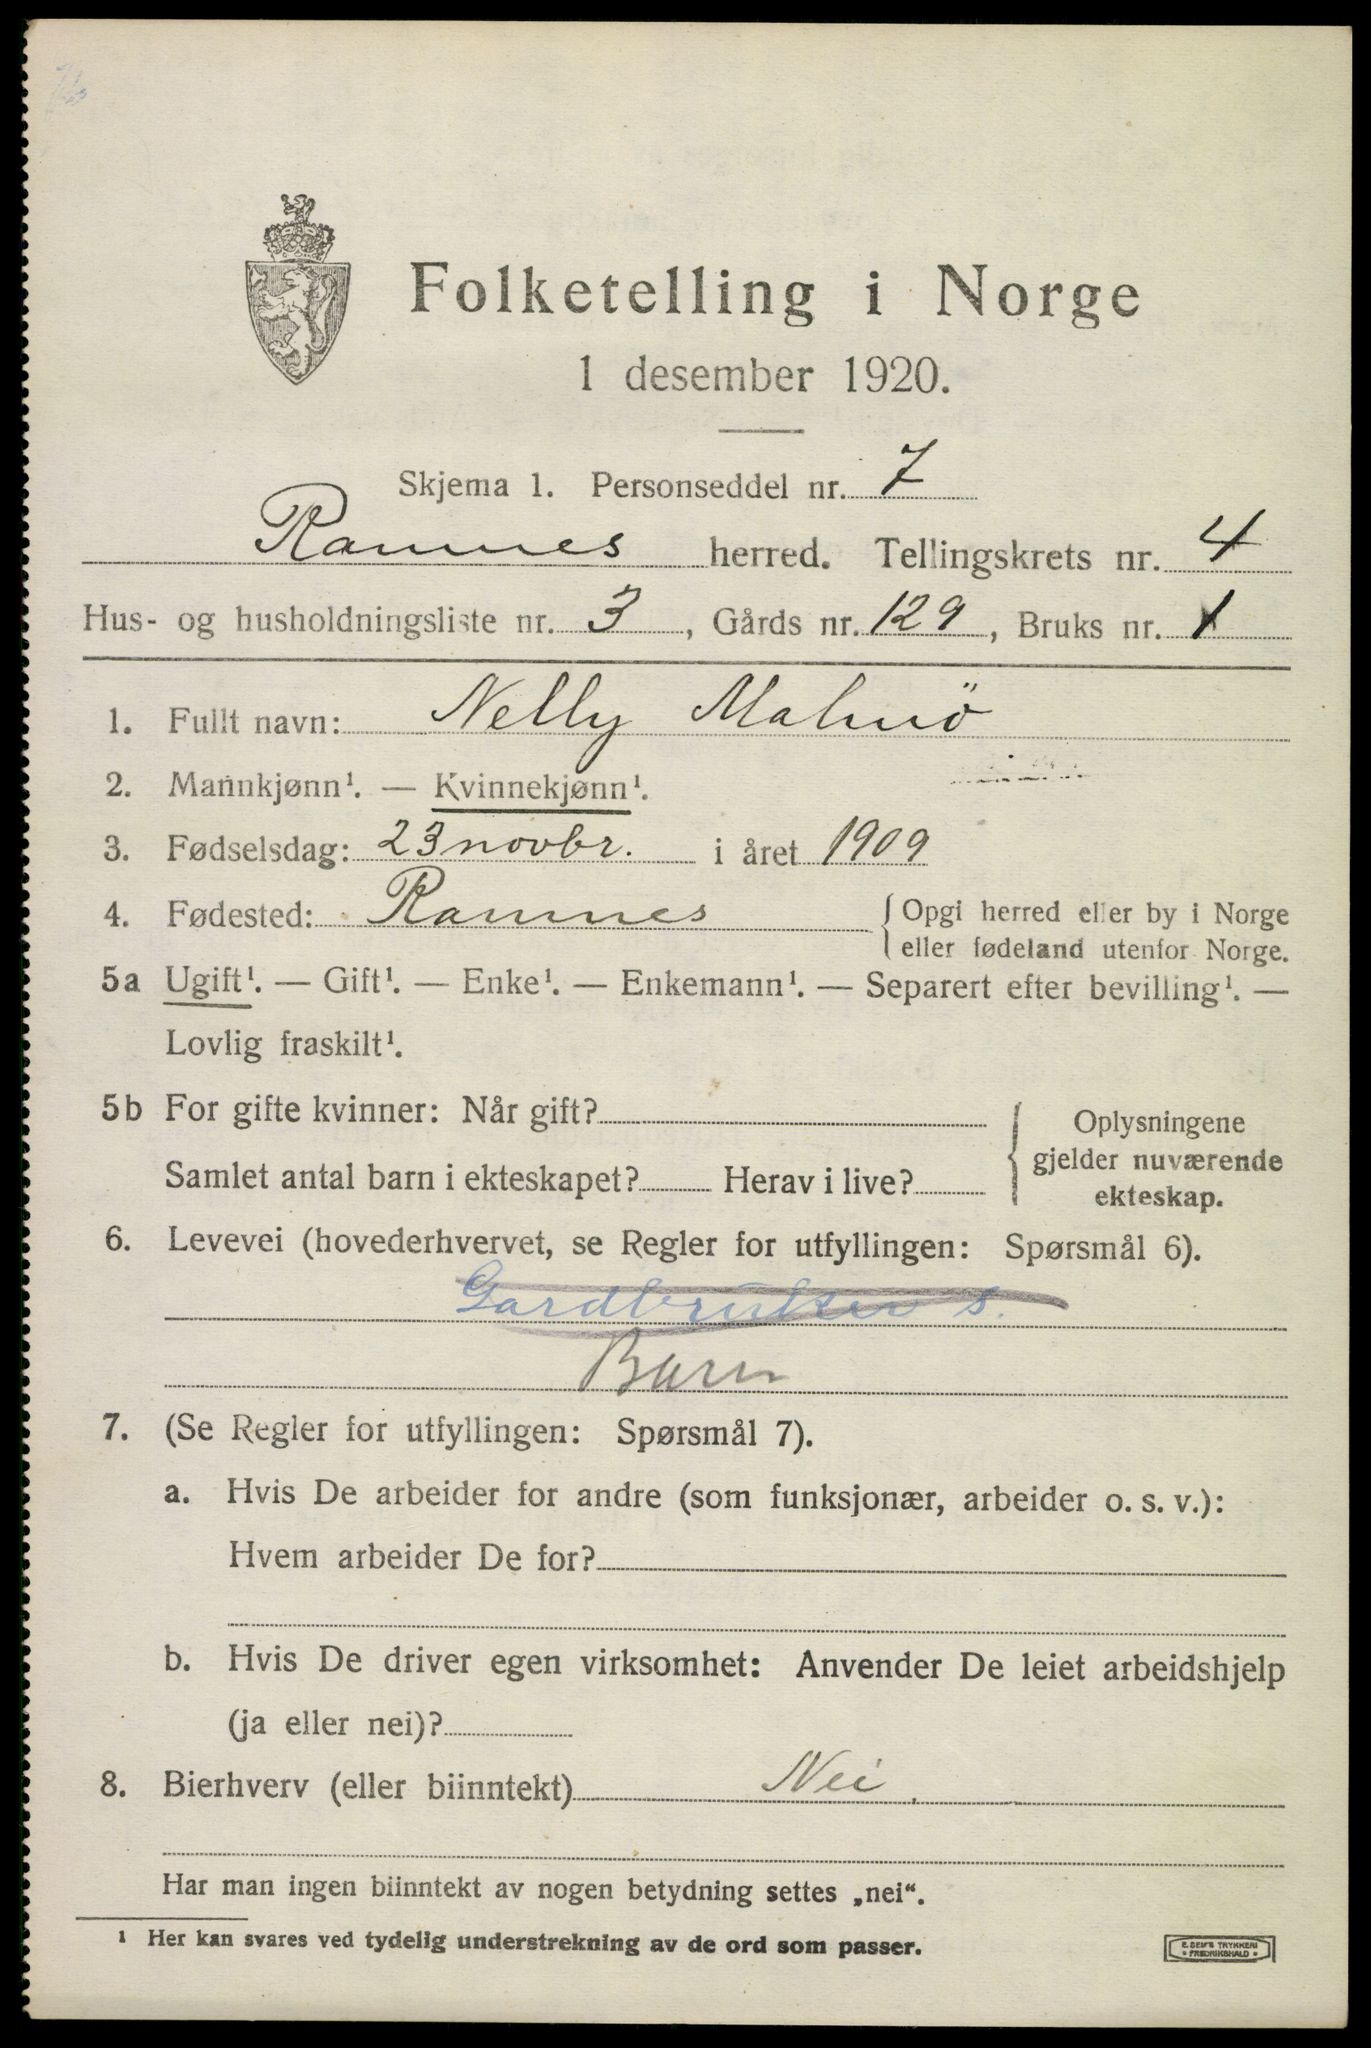 Folketelling i Norge
1 desember 1920.
Skjema 1. Personseddel nr. 7
Ramnes herred. Tellingskrets nr. 4
Hus- og husholdningsliste nr. 3, Gårds nr. 129, Bruks nr. 1
1. Fullt navn: Nelly Malmö
2. Mannkjønn¹. — Kvinnekjønn¹.
3. Fødselsdag: 23 novbr. i året 1909
4. Fødested: Ramnes { Opgi herred eller by i Norge
eller fødeland utenfor Norge.
5a Ugift¹. — Gift¹. — Enke¹. — Enkemann¹. — Separert efter bevilling¹. —
Lovlig fraskilt¹.
5b For gifte kvinner: Når gift?
Samlet antal barn i ekteskapet? Herav i live?
Oplysningene
gjelder nuværende
ekteskap.
6. Levevei (hovederhvervet, se Regler for utfyllingen: Spørsmål 6).
Gardbruker s.
Barn
7. (Se Regler for utfyllingen: Spørsmål 7).
a. Hvis De arbeider for andre (som funksjonær, arbeider o. s. v.):
Hvem arbeider De for?
b. Hvis De driver egen virksomhet: Anvender De leiet arbeidshjelp
(ja eller nei)?
8. Bierhverv (eller biinntekt) Nei.
Har man ingen biinntekt av nogen betydning settes „nei“.
¹ Her kan svares ved tydelig understrekning av de ord som passer.
E. SEM'S TRYKKERI
• FREDRIKSHALD •